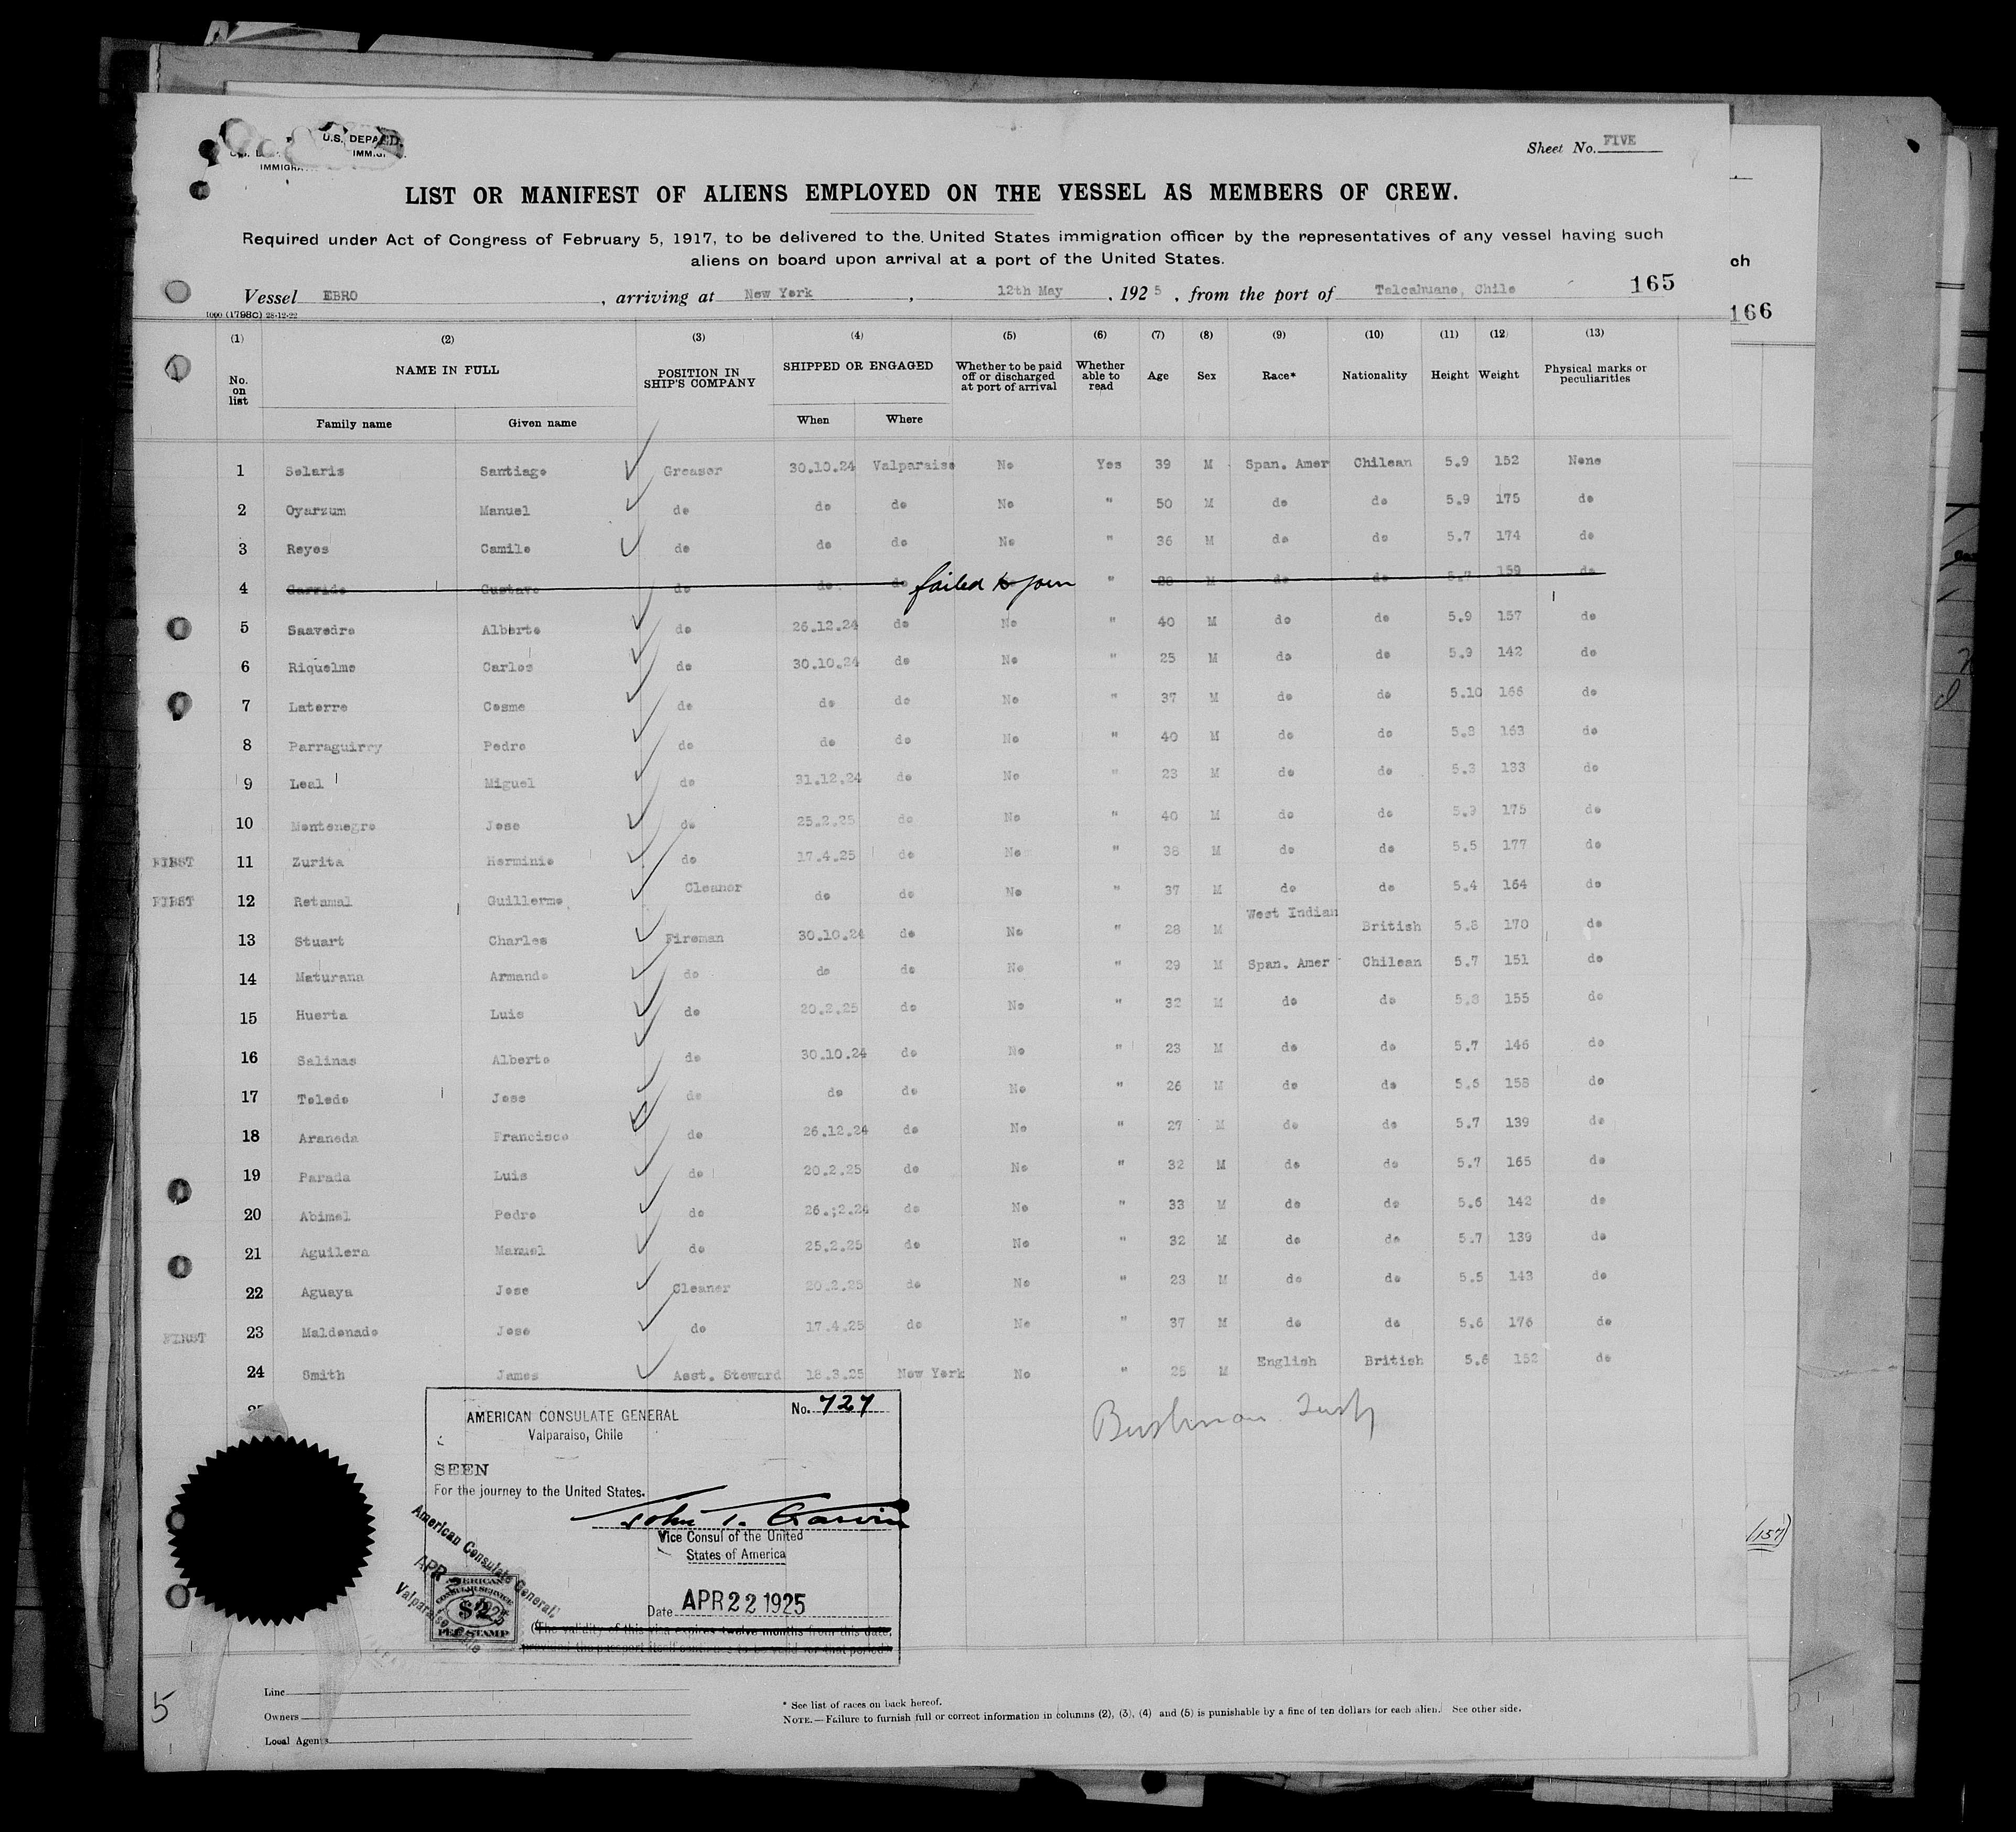 U.S. DEPA
IMMIGRA
Sheet No. FIVE
LIST OR MANIFEST OF ALIENS EMPLOYED ON THE VESSEL AS MEMBERS OF CREW.
Required under Act of Congress of February 5, 1917, to be delivered to the United States immigration officer by the representatives of any vessel having such
aliens on board upon arrival at a port of the United States.
Vessel EBRO, arriving at New York, 12th May, 1925, from the port of Talcahuano, Chile 165
1000 (1798C) 28-12-22
166
(1) (2) (3) (4) (5) (6) (7) (8) (9) (10) (11) (12) (13)
No. on list NAME IN FULL POSITION IN SHIP'S COMPANY SHIPPED OR ENGAGED Whether to be paid off or discharged at port of arrival Whether able to read Age Sex Race* Nationality Height Weight Physical marks or peculiarities
Family name Given name When Where
1 Solaris Santiago Greaser 30.10.24 Valparaiso No Yes 39 M Span. Amer Chilean 5.9 152 None
2 Oyarzum Manuel do do do No " 50 M do do 5.9 175 do
3 Reyes Camilo do do do No " 36 M do do 5.7 174 do
4 Garrido Gustavo do do do failed to join " 28 M do do 5.7 159 do
5 Saavedra Alberto do 26.12.24 do No " 40 M do do 5.9 157 do
6 Riquelme Carlos do 30.10.24 do No " 25 M do do 5.9 142 do
7 Latorre Cosme do do do No " 37 M do do 5.10 166 do
8 Parraguirry Pedro do do do No " 40 M do do 5.8 163 do
9 Leal Miguel do 31.12.24 do No " 23 M do do 5.3 133 do
10 Montenegro Jose do 25.2.25 do No " 40 M do do 5.9 175 do
FIRST 11 Zurita Herminio do 17.4.25 do No " 38 M do do 5.5 177 do
FIRST 12 Retamal Guillermo Cleaner do do No " 37 M do do 5.4 164 do
13 Stuart Charles Fireman 30.10.24 do No " 28 M West Indian British 5.8 170 do
14 Maturana Armando do do do No " 29 M Span. Amer Chilean 5.7 151 do
15 Huerta Luis do 20.2.25 do No " 32 M do do 5.8 155 do
16 Salinas Alberto do 30.10.24 do No " 23 M do do 5.7 146 do
17 Toledo Jose do do do No " 26 M do do 5.6 158 do
18 Araneda Francisco do 26.12.24 do No " 27 M do do 5.7 139 do
19 Parada Luis do 20.2.25 do No " 32 M do do 5.7 165 do
20 Abimal Pedro do 26.;2.24 do No " 33 M do do 5.6 142 do
21 Aguilera Manuel do 25.2.25 do No " 32 M do do 5.7 139 do
22 Aguaya Jose Cleaner 20.2.25 do No " 23 M do do 5.5 143 do
FIRST 23 Maldonado Jose do 17.4.25 do No " 37 M do do 5.6 176 do
24 Smith James Asst. Steward 18.3.25 New York No " 25 M English British 5.6 152 do
AMERICAN CONSULATE GENERAL No. 727
Valparaiso, Chile
SEEN
For the journey to the United States.
Vice Consul of the United
States of America
Date APR 22 1925
(The validity of this visa expires twelve months from this date,
provided the passport itself continues to be valid for that period.
American Consulate General,
APR 22 1925
Valparaiso, Chile
AMERICAN
CONSULAR SERVICE
$2
FEE STAMP
(157)
5
Line
Owners
Local Agents
* See list of races on back hereof.
NOTE.—Failure to furnish full or correct information in columns (2), (3), (4) and (5) is punishable by a fine of ten dollars for each alien. See other side.